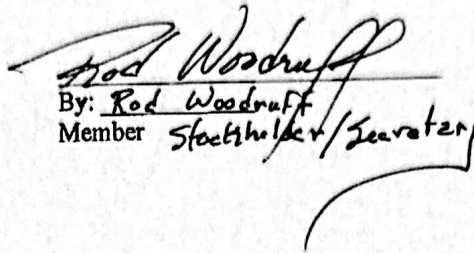 Rod Woodruff
By: Rod Woodruff
Member Stockholder/Secretary